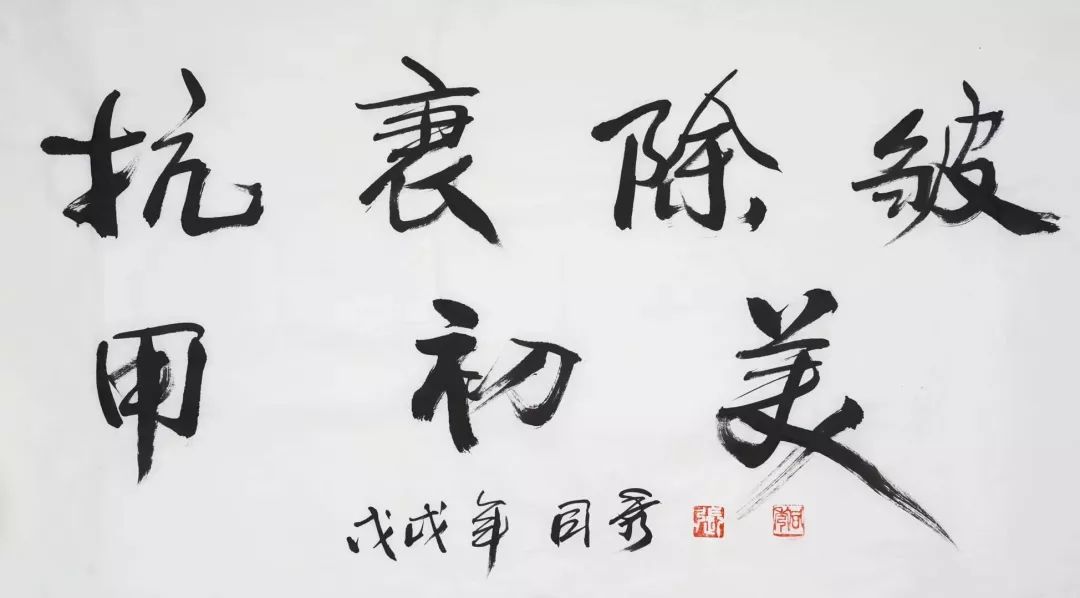 抗衰除皱
用初美
戊戌年 同秀